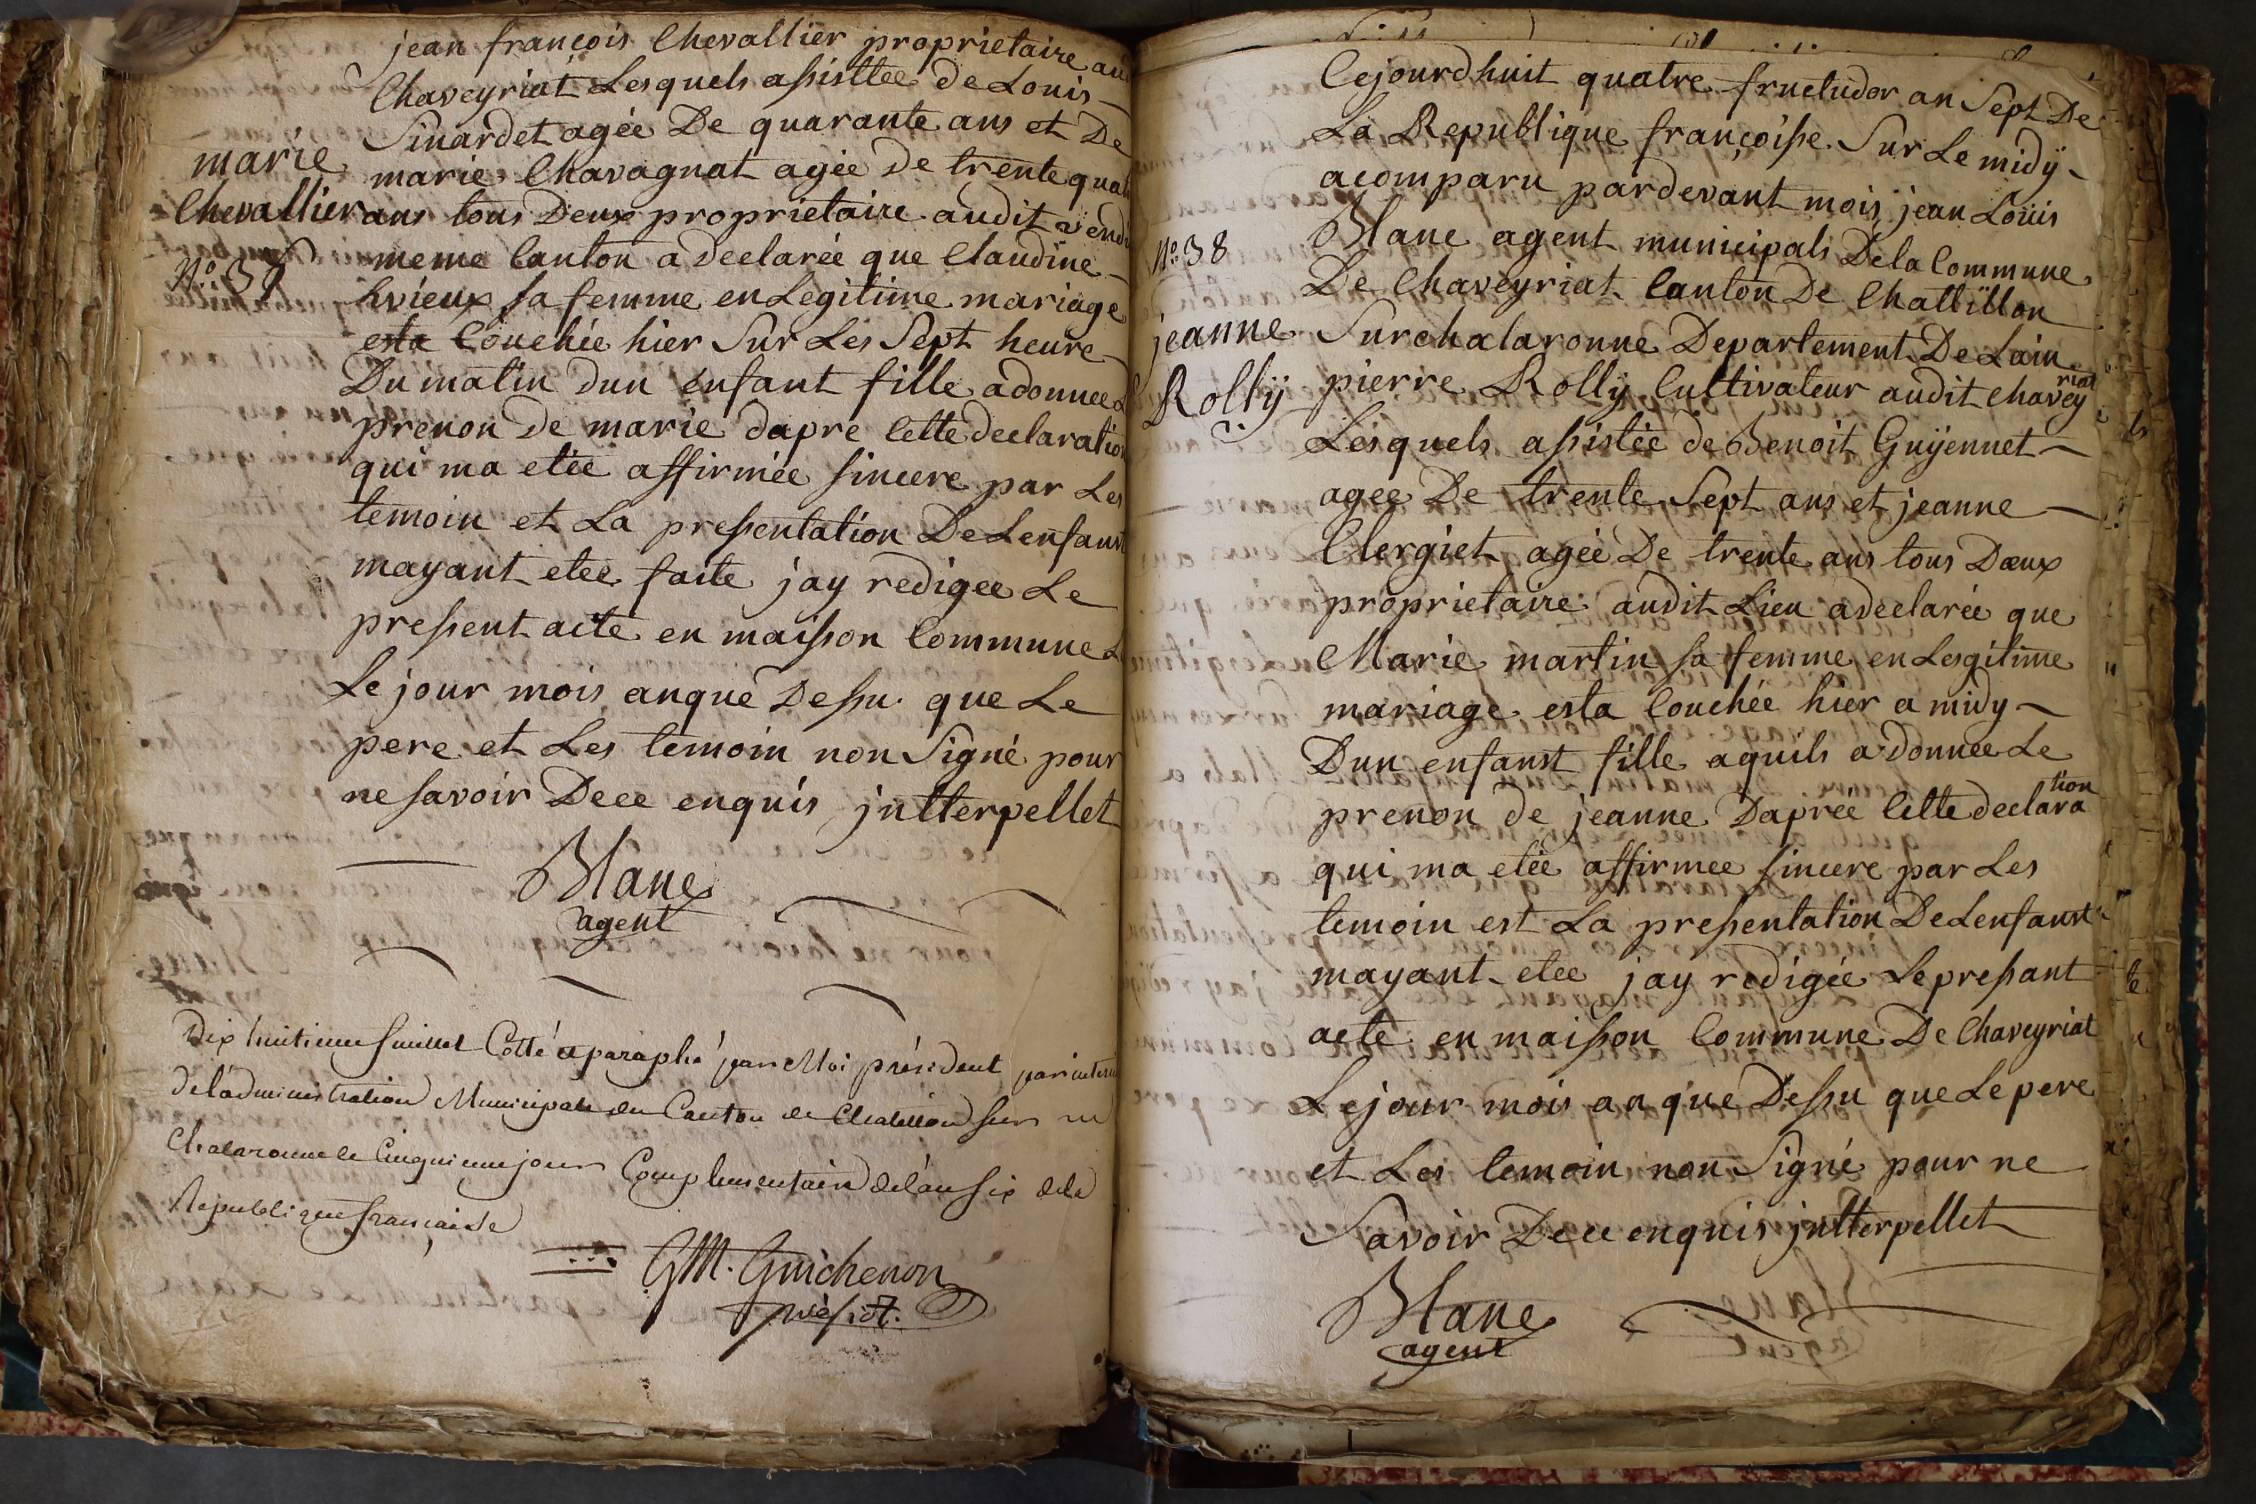 jean françois Chevallier proprietaire au
Chaveyriat Lesquels assisttée de Louis
Sinardet agée De quarante ans et De
marie Chavagnat agée de trente quat
ans tous Deux proprietaire audit vend
meme Canton a declarée que Claudine
sa femme en Legitime mariage
esta Couchée hier Sur Les Sept heure
Du matin dun enfant fille adonnee
prenon de marie dapre Cette declaration
qui ma etée affirmée sincere par Les
temoin et La pressentation De Lenfanst
mayant etee faite jay redigee Le
pressent acte en maisson Commune
Le jour mois anque Dessu que Le
pere et Les temoin non Signé pour
ne savoir Dece enquis jntterpellet
Blanc
agent
marie
Chevallier
N° 37
Dix huitieme feuillet Cotté & paraphé par Moi président par interim
de l'administration Municipale du Canton de Chatillon sur
Chalaronne le Cinquieme jour Complementaire de l'an six de la
Republique française
GM. Guichenon
présidt.
Cejourdhuit quatre fructudor an Sept De
La Republique françoisse. Sur Le midÿ
acomparu pardevant mois jean Loüis
Blanc agent municipals De la Commune
De Chaveyriat Canton De Chattïllon
Surchalaronne Departement De Lain
pierre Rollÿ Cultivateur audit chaveyriat
Lesquels assistée de Benoit Guÿennet
agee De trente Sept ans et jeanne
Clergiet agée De trente ans tous Dœux
proprietaire audit Lieu adeclarée que
Marie martin sa femme en Lesgitime
mariage esta Couchée hier a midy
Dun enfanst fille aquils a donnee Le
prenon de jeanne Daprée Cette declaration
qui ma etée affirmee sincere par Les
temoin est La pressentation De Lenfanst
mayant etee jay redigée Le pressant
acte en maisson Commune De Chaveyriat
Le jour mois an que Dessu que Le pere
et Les temoin non Signé pour ne
Savoir Dece enquis jntterpellet
Blanc
agent
N° 38
jeanne
Rollÿ